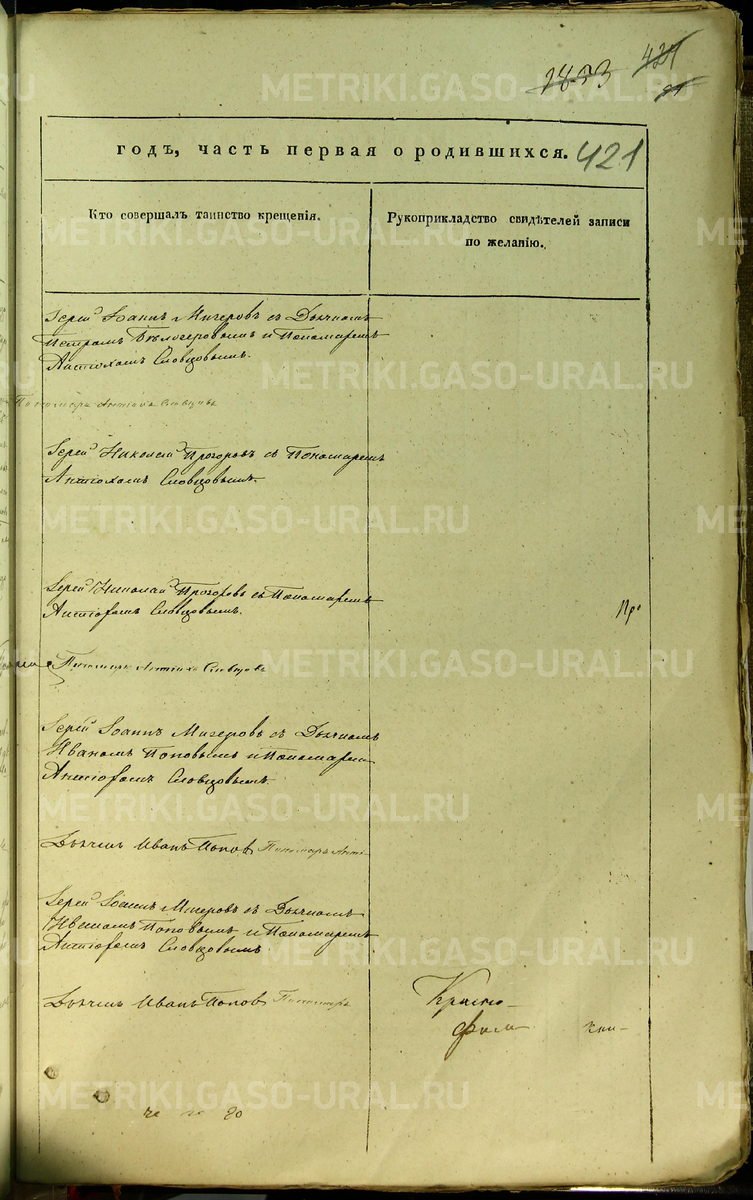 1873
421
годъ, часть первая о родившихся. 421
Кто совершалъ таинство крещенія.
Рукоприкладство свидѣтелей записи
по желанію.
METRIKI.GASO-URAL.RU
Іерей Іоаннъ Мизеровъ съ Дьячкомъ
Петромъ и Пономаремъ
Антіохомъ Словцовымъ.
Пономарь Антіохъ Словцовъ
Іерей Николай Прозоровъ съ Пономаремъ
Антіохомъ Словцовымъ.
Іерей Николай Прозоровъ съ Пономаремъ
Антіохомъ Словцовымъ.
Пономарь Антіохъ Словцовъ
Іерей Іоаннъ Мизеровъ съ Дьячкомъ
Иваномъ Поповымъ и Пономаремъ
Антіохомъ Словцовымъ.
Дьячекъ Иванъ Поповъ Пономарь Анті
Іерей Іоаннъ Мизеровъ съ Дьячкомъ
Иваномъ Поповымъ и Пономаремъ
Антіохомъ Словцовымъ.
Дьячекъ Иванъ Поповъ Пономарь
Красно-